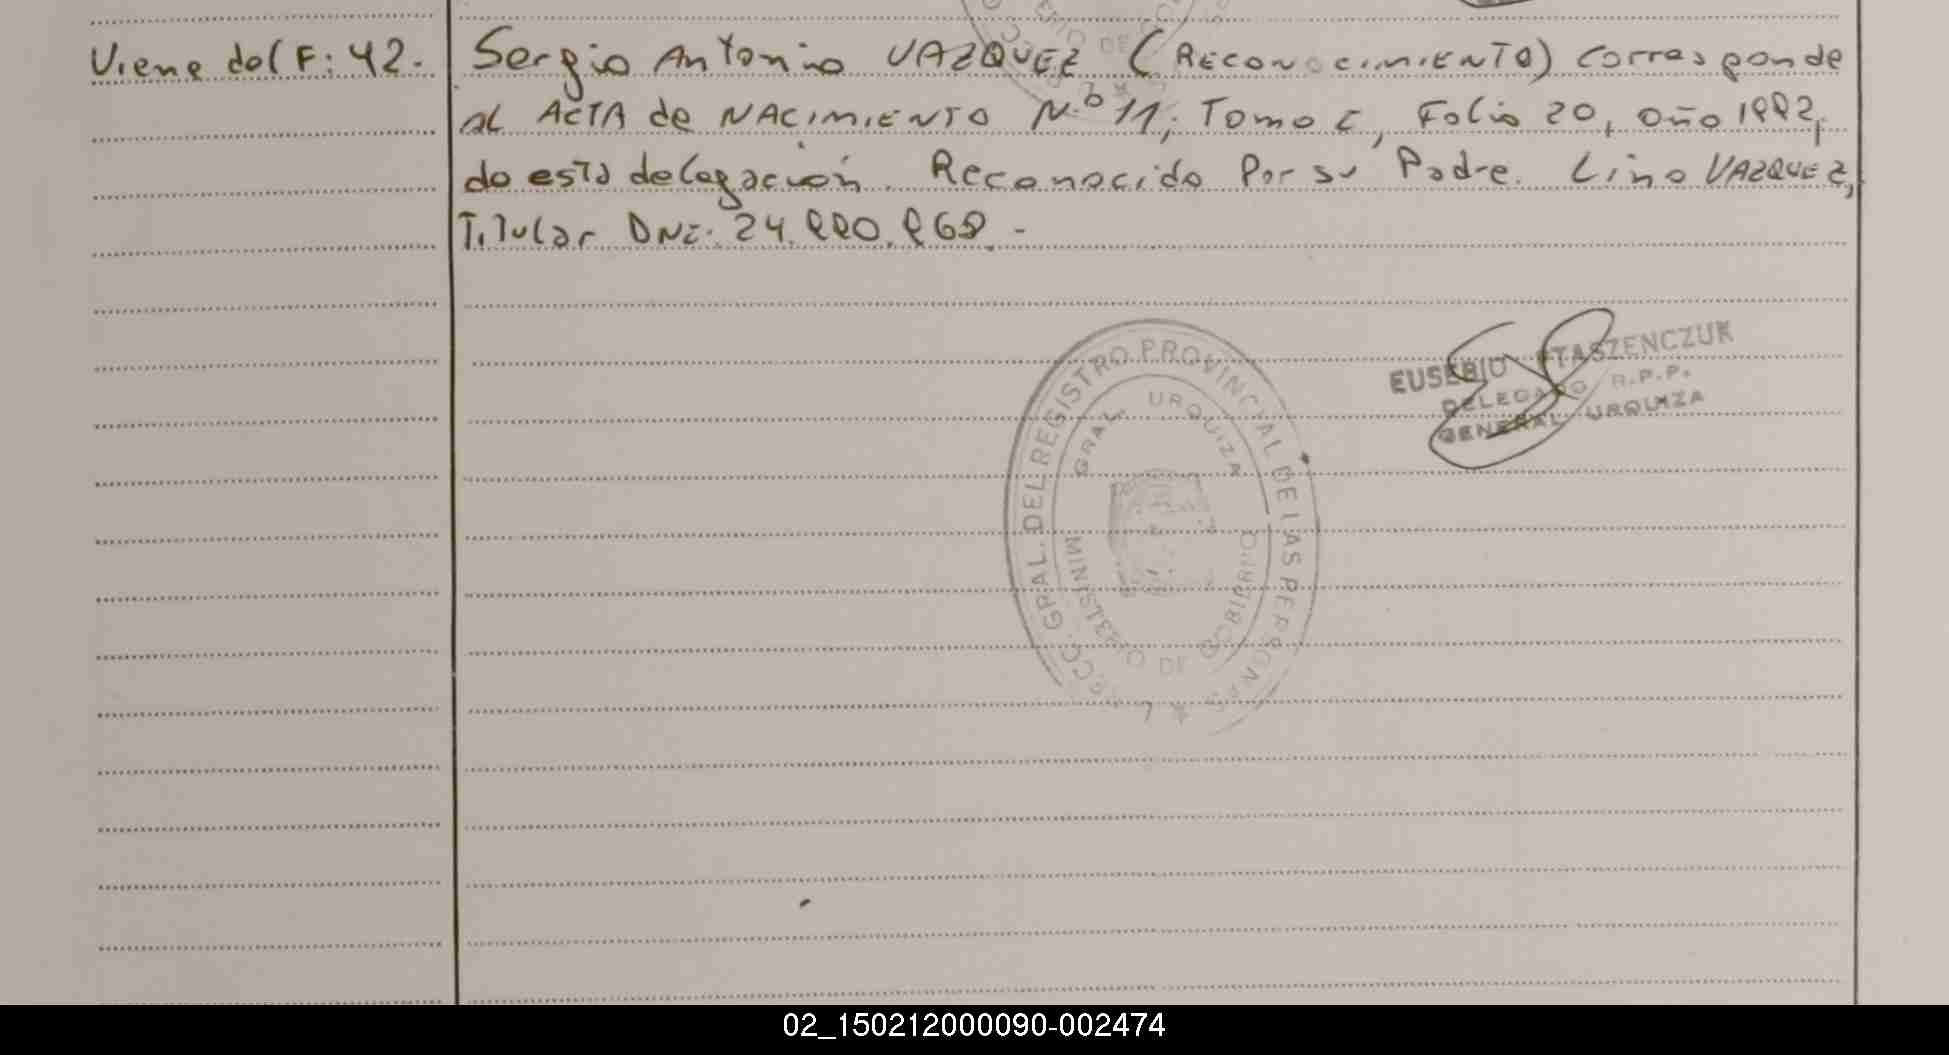 Viene del F: 42.
Sergio Antonio VAZQUEZ (RECONOCIMIENTO) corresponde
al ACTA de NACIMIENTO N.º 11; Tomo I, Folio 20, año 1992,
de esta delegación. Reconocido Por su Padre. Lino VAZQUEZ,
Titular DNI: 24.990.968.-
EUSEBIO STASZENCZUK
DELEGADO R.P.P.
GENERAL URQUIZA
RECC. GRAL. DEL REGISTRO PROVINCIAL DE LAS PERSONAS
GRAL. URQUIZA
MINISTERIO DE GOBIERNO
02_150212000090-002474